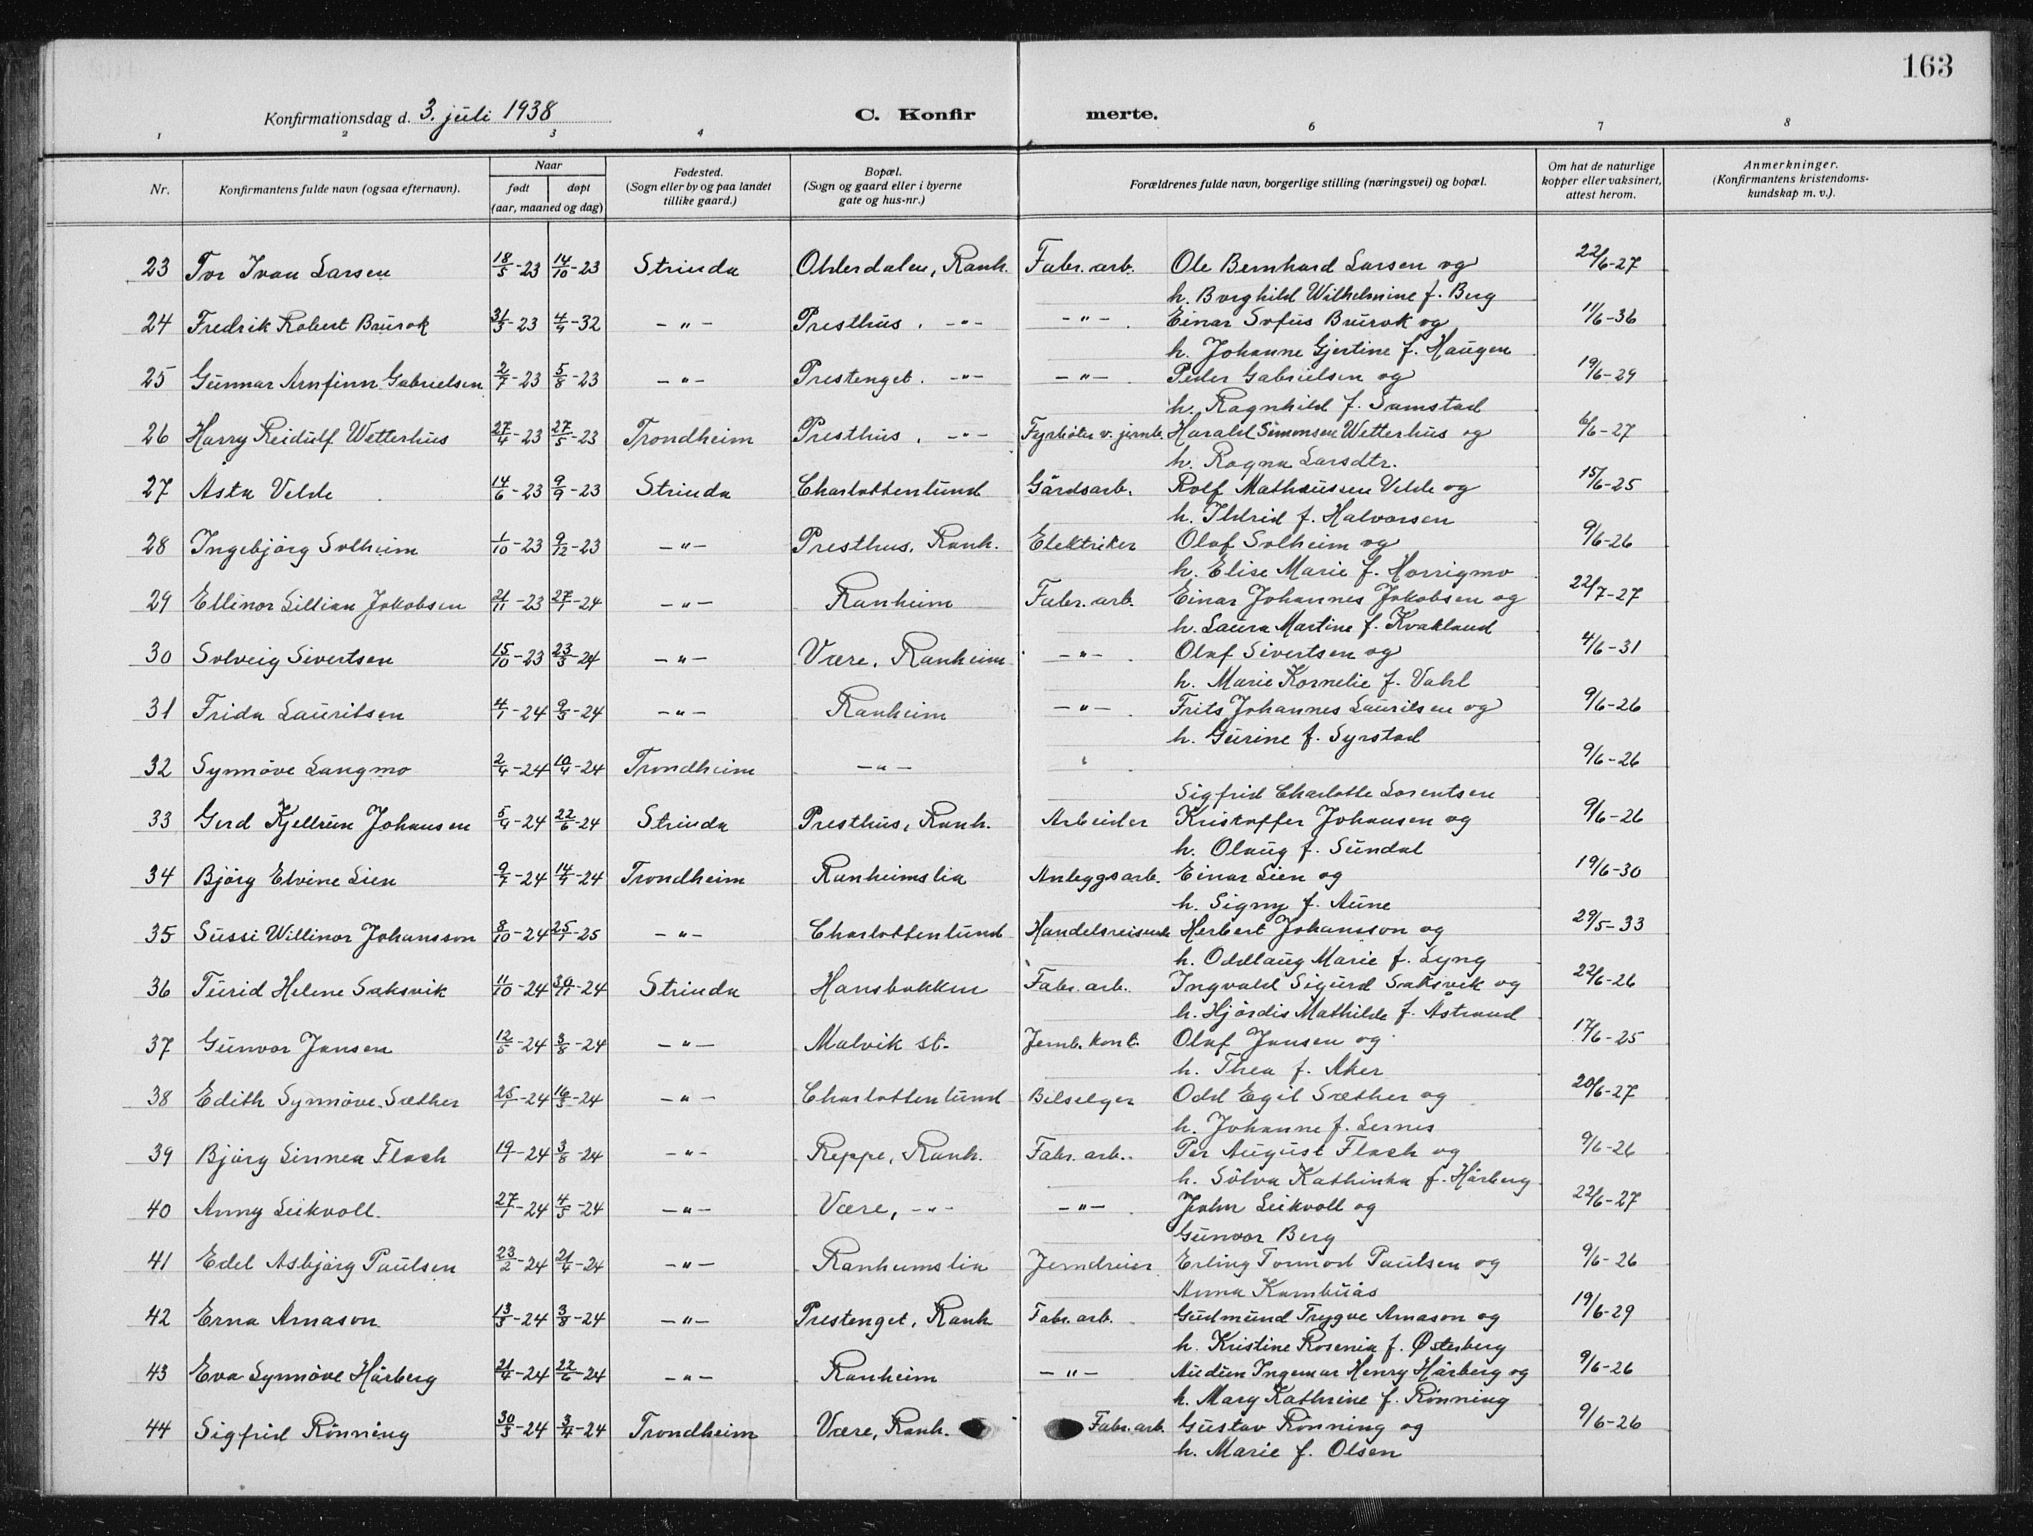 163
Konfirmationsdag d. 3. juli 1938 C. Konfir merte.
1 2 3 4 6 7 8
Nr. Konfirmantens fulde navn (ogsaa efternavn). Naar født døpt (aar, maaned og dag) Fødested. (Sogn eller by og paa landet tillike gaard.) Bopæl. (Sogn og gaard eller i byerne gate og hus-nr.) Forældrenes fulde navn, borgerlige stilling (næringsvei) og bopæl. Om hat de naturlige kopper eller vaksinert, attest herom. Anmerkninger. (Konfirmantens kristendoms-kundskap m. v.).
23 Tor Ivan Larsen 18/5-23 14/10-23 Strinda Ohlerdalen, Ranh. Fabr. arb. Ole Bernhard Larsen og 22/6-27
h. Borghild Wilhelmine f. Berg
24 Fredrik Robert Brurok 31/3-23 4/9-32 -"- Presthus, -"- -"- Einar Sofus Brurok og 11/6-36
h. Johanne Gjertine f. Haugen
25 Gunnar Arnfinn Gabrielsen 2/7-23 5/8-23 -"- Prestenget. -"- -"- Peder Gabrielsen og 19/6-29
h. Ragnhild f. Samstad
26 Harry Reidulf Wetterhus 27/4-23 27/5-23 Trondheim Presthus, -"- Fyrbøter v. jernb. Harald Simonsen Wetterhus og 6/6-27
h. Ragna Larsdtr.
27 Asta Velde 14/6-23 9/9-23 Strinda Charlottenlund Gårdsarb. Rolf Mathaussen Velde og 15/6-25
h. Ildrid f. Halvorsen
28 Ingebjørg Solheim 1/10-23 9/12-23 -"- Presthus, Ranh. Elektriker Olaf Solheim og 9/6-26
h. Elise Marie f. Horrigmo
29 Ellinor Lillian Jakobsen 21/11-23 27/1-24 -"- Ranheim Fabr. arb. Einar Johannes Jakobsen og 22/7-27
h. Laura Martine f. Kvakland
30 Solveig Sivertsen 15/10-23 23/3-24 -"- Være, Ranheim -"- Olaf Sivertsen og 4/6-31
h. Marie Kornelie f. Vahl
31 Frida Lauritsen 4/1-24 9/3-24 -"- Ranheim -"- Frits Johannes Lauritsen og 9/6-26
h. Gurine f. Syrstad
32 Synnøve Langmo 2/4-24 10/4-24 Trondheim -"- " 9/6-26
Sigfrid Charlotte Lorentsen
33 Gerd Kjellrun Johansen 5/4-24 22/6-24 Strinda Presthus, Ranh. Arbeider Kristoffer Johansen og 9/6-26
h. Olaug f. Sundal
34 Bjørg Elvine Lien 9/7-24 14/9-24 Trondheim Ranheimslia Anleggsarb. Einar Lien og 19/6-30
h. Signy f. Aune
35 Sussi Willinor Johansson 8/10-24 25/1-25 -"- Charlottenlund Handelsreisende Herbert Johansson og 29/5-33
h. Oddlaug Marie f. Lyng
36 Turid Helene Saksvik 11/10-24 30/11-24 Strinda Hansbakken Fabr. arb. Ingvald Sigurd Saksvik og 22/6-26
h. Hjørdis Mathilde f. Åstrand
37 Gunvor Jansen 12/5-24 3/8-24 -"- Malvik st. Jernb. kont. Olaf Jansen og 17/6-25
h. Thea f. Aker
38 Edith Synnøve Sæther 25/1-24 16/3-24 -"- Charlottenlund Bilselger Odd Egil Sæther og 20/6-27
h. Johanne f. Lernes
39 Bjørg Linnea Flach 19/1-24 3/8-24 -"- Reppe, Ranh. Fabr. arb. Per August Flach og 9/6-26
h. Sølva Kathinka f. Hårberg
40 Anny Leikvoll 27/1-24 4/5-24 -"- Være, -"- -"- John Leikvoll og 22/6-27
Gunvor Berg
41 Edel Asbjørg Paulsen 23/2-24 21/4-24 -"- Ranheimslia Jerndreier Erling Tormod Paulsen og 9/6-26
Anna Kambuås
42 Erna Arnason 13/3-24 3/8-24 -"- Prestenget, Ranh Fabr. arb. Gudmund Trygve Arnason og 19/6-29
h. Kristine Rosenia f. Østerberg
43 Eva Synnøve Hårberg 21/4-24 22/6-24 -"- Ranheim -"- Audun Ingemar Henry Hårberg og 9/6-26
h. Mary Kathrine f. Rønning
44 Sigfrid Rønning 30/3-24 3/4-24 Trondheim Være, Ranh. Fabr. arb. Gustav Rønning og 9/6-26
h. Marie f. Olsen